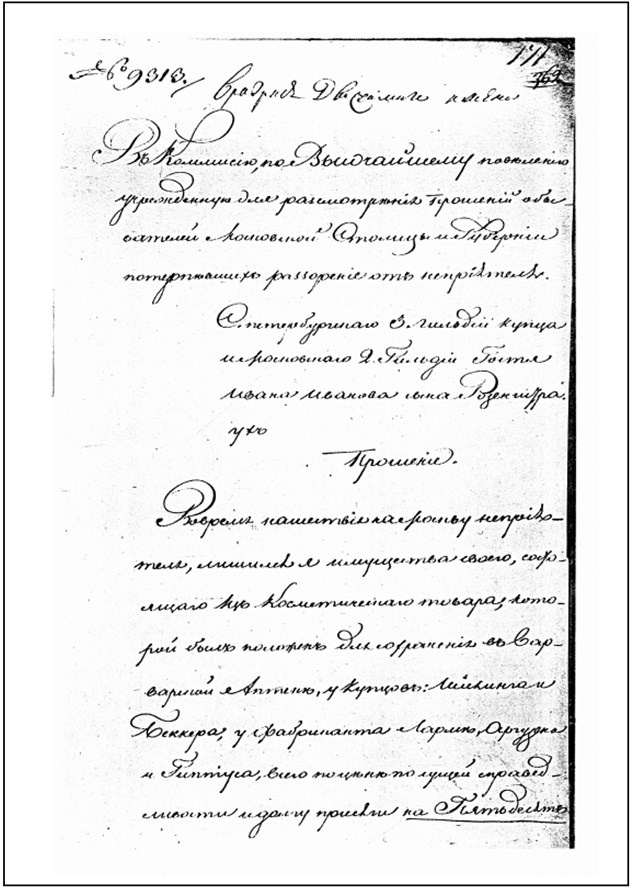 171
№ 9313.
762
Въ Коммисію, по Высочайшему повелѣнію
учрежденную для разсмотрѣнія прошеній обы-
вателей Московской Столицы и Губерніи
потерпѣвшихъ разореніе отъ непріятеля.
С. петербургскаго 3. Гильдіи купца
и Московскаго 2. Гильдіи Гостя
Ивана Иванова сына Розенштра-
ухъ
Прошеніе.
Вовремя нашествія на Москву непрія-
теля, лишился я имущества своего, состо-
ящаго изъ Косметическаго товара, кото-
рой былъ положенъ для сохраненія въ Вар-
варской Аптекѣ, у купцовъ: и
Беккера, у Фабриканта
и Гиппіуса, всего по цѣнѣ по сущей справед-
ливости и долгу присяги на Пятьдесятъ